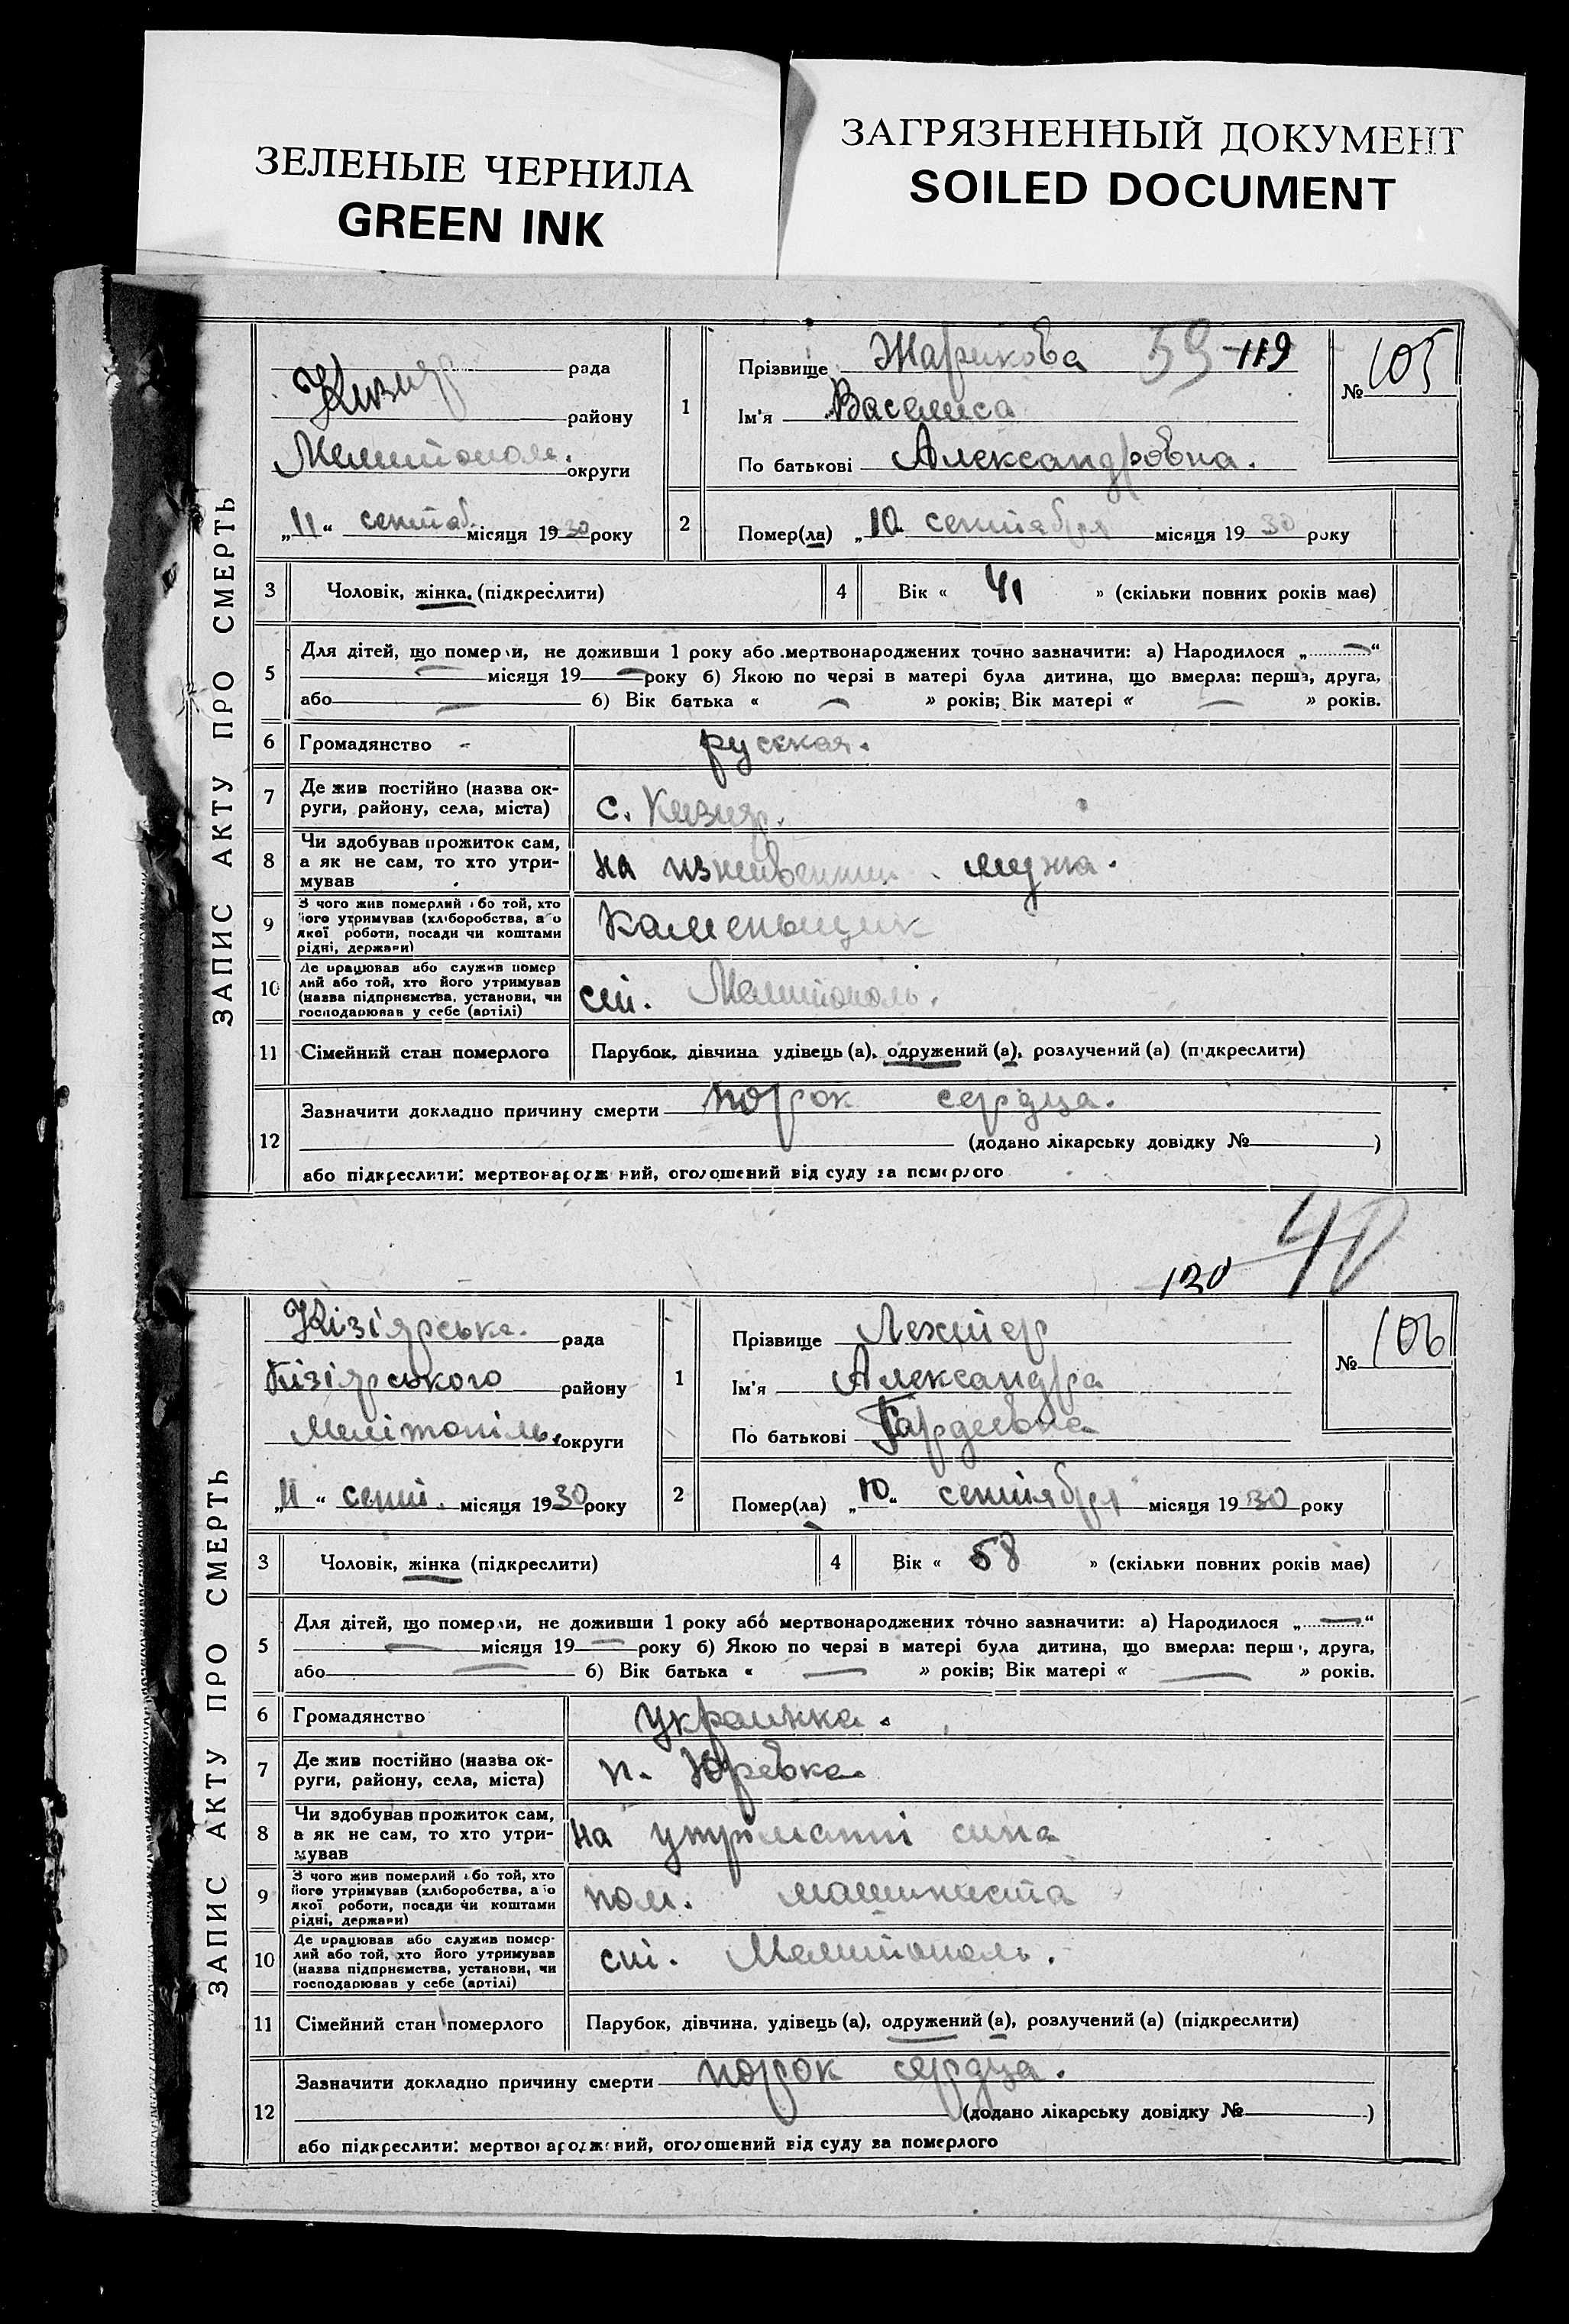 ЗЕЛЕНЫЕ ЧЕРНИЛА
GREEN INK
ЗАГРЯЗНЕННЫЙ ДОКУМЕНТ
SOILED DOCUMENT
ЗАПИС АКТУ ПРО СМЕРТЬ
Кизияр рада
району
Мелитополь. округи
„11“ сентяб. місяця 1930 року
1
Прізвище Жарикова 39 119
Ім'я Василиса
По батькові Александровна.
№ 105
2
Помер(ла) „10“ сентября місяця 1930 року
3 Чоловік, жінка, (підкреслити)
4 Вік « 41 » (скільки повних років має)
5 Для дітей, що померли, не доживши 1 року або мертвонароджених точно зазначити: а) Народилося „ — “
— місяця 19 — року б) Якою по черзі в матері була дитина, що вмерла: перша, друга,
або — б) Вік батька « — » років; Вік матері « — » років.
6 Громадянство - русская.
7 Де жив постійно (назва ок-
руги, району, села, міста)
с. Кизияр.
8 Чи здобував прожиток сам,
а як не сам, то хто утри-
мував
на мужа.
9 З чого жив померлий або той, хто
його утримував (хліборобства, або
якої роботи, посади чи коштами
рідні, держави)
Каменьщик
10 Де працював або служив помер
лий або той, хто його утримував
(назва підприємства, установи, чи
господарював у себе (артілі)
ст. Мелитополь.
11 Сімейний стан померлого Парубок, дівчина удівець (а), одружений (а), розлучений (а) (підкреслити)
12 Зазначити докладно причину смерти порок сердца.
(додано лікарську довідку № )
або підкреслити: мертвонароджений, оголошений від суду за померлого
120 40
ЗАПИС АКТУ ПРО СМЕРТЬ
Кізіярська рада
Кізіярського району
Мелітопіль. округи
„11“ сент. місяця 1930 року
1
Прізвище Лехтер
Ім'я Александра
По батькові Гордеевна
№ 106
2
Помер(ла) „10“ сентября місяця 1930 року
3 Чоловік, жінка (підкреслити)
4 Вік « 58 » (скільки повних років має)
5 Для дітей, що померли, не доживши 1 року або мертвонароджених точно зазначити: а) Народилося „ — “
— місяця 19 — року б) Якою по черзі в матері була дитина, що вмерла: перш, друга,
або — б) Вік батька « — » років; Вік матері « — » років.
6 Громадянство украинка.
7 Де жив постійно (назва ок-
руги, району, села, міста)
п. Юревка.
8 Чи здобував прожиток сам,
а як не сам, то хто утри-
мував
на утриманні сина
9 З чого жив померлий або той, хто
його утримував (хліборобства, або
якої роботи, посади чи коштами
рідні, держави)
пом. машиниста
10 Де працював або служив помер-
лий або той, хто його утримував
(назва підприємства, установи, чи
господарював у себе (артілі)
ст. Мелитополь.
11 Сімейний стан померлого Парубок, дівчина, удівець (а), одружений (а), розлучений (а) (підкреслити)
12 Зазначити докладно причину смерти порок сердца.
(додано лікарську довідку № )
або підкреслити: мертвонароджений, оголошений від суду за померлого